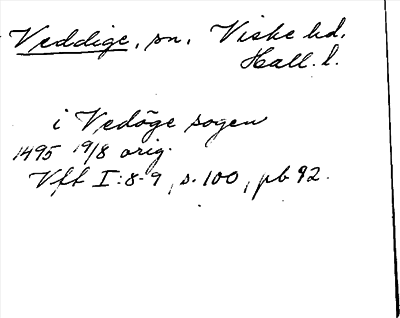 Veddige, sn, Viske hd,
Hall. l.
i Vedöge sogen
1495 19/8 orig.
Vft I:8-9, s. 100, pb 92.